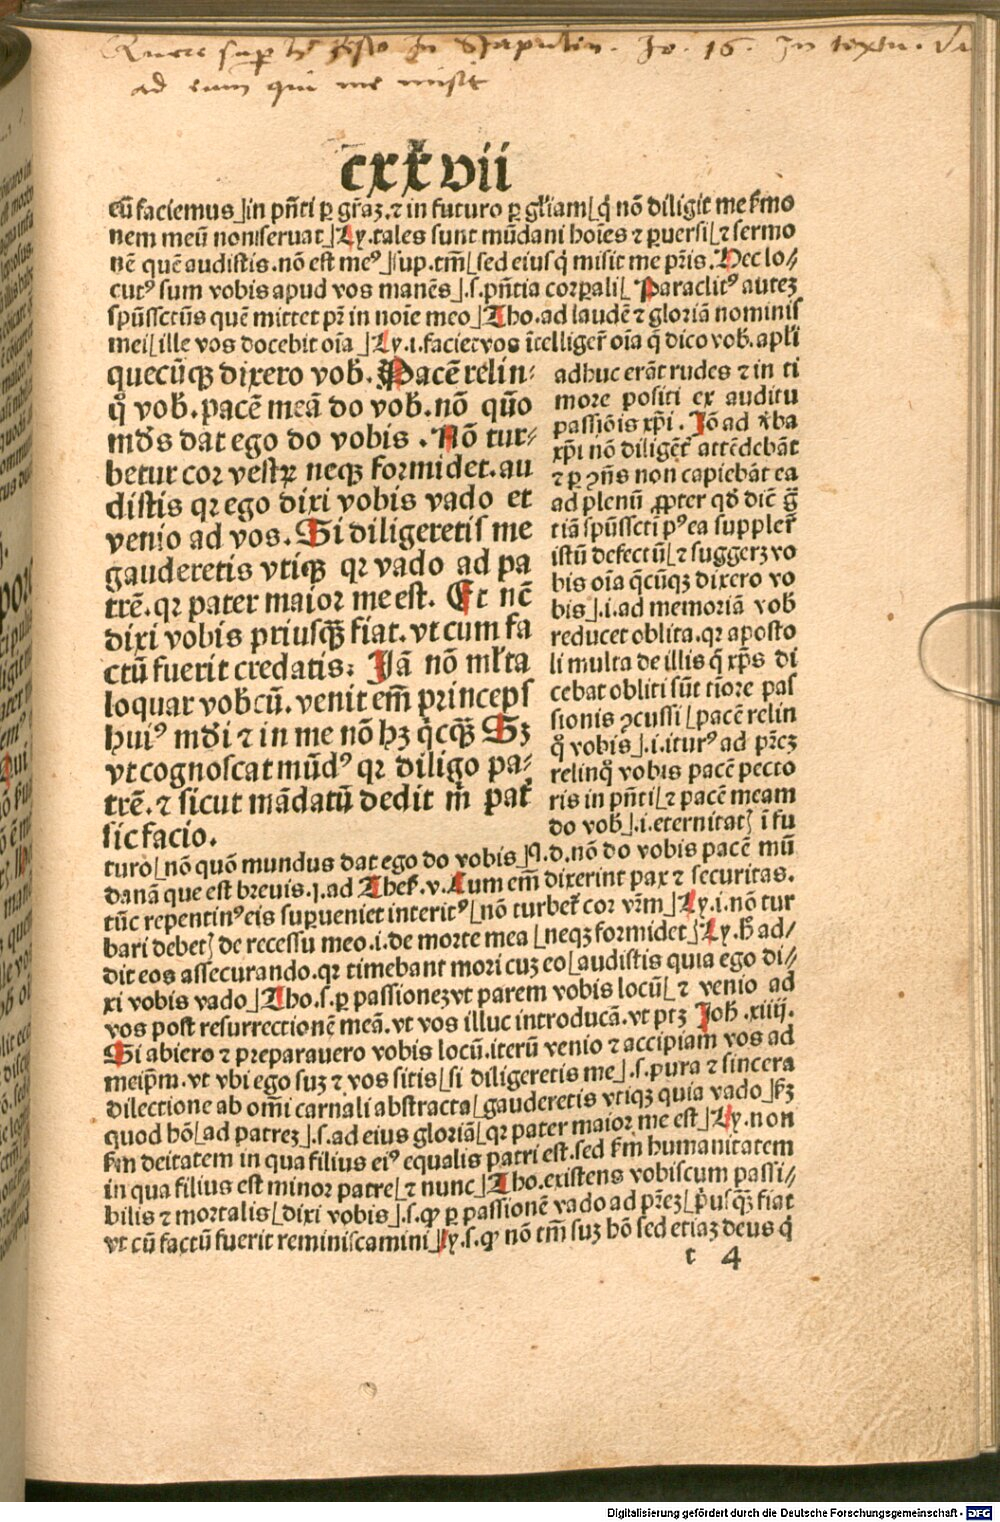 ad eum qui me misit
cxxvii
cū faciemus⌋in pn̄ti ꝑ gr̄aꝫ.⁊ in futuro ꝑ gl̄iam⌊q̇ nō diligit me ẜmo
nem meū non ẜeruat⌋Ly.tales ſunt mūdani hoīes ⁊ ꝑuerſi⌊⁊ ſermo
nē quē audiſtis.nō eſt meꝰ⌋ſup.tm̄⌊ſed eiuſ q̇ miſit me pr̄is.Hec lo⸗
cutꝰ ſum vobis apud vos manēs⌋.ſ.pn̄tia corꝑali⌊Paraclitꝰ auteꝫ
ſpūſſctūs quē mittet pr̄ in noīe meo⌋Tho.ad laudē ⁊ gloriā nominiſ
mei⌊ille vos docebit oīa⌋Ly.i.faciet vos ītelliger̄ oīa q̄ dico vob̄.apl̄i
quecūqꝫ dixero vob̄.Pacē relin⸗
q̊ vob̄.pacē meā do vob̄.nō quō
mūds dat ego do vobis.Nō tur⸗
betur cor veſtꝝ neqꝫ formidet.au
diſtis qꝛ ego dixi vobis vado et
venio ad vos.Si diligeretiſ me
gauderetis vtiqꝫ qꝛ vado ad pa
trē.qꝛ pater maior me eſt. Et nc̄
dixi vobis priuſqꝫ̄ fiat.vt cum fa
ctū fuerit credatis: Jā nō ml̄ta
loquar vob̄cū.venit em̄ princepſ
huiꝰ mūdi ⁊ in me nō hꝫ q̇cqꝫ̄ Sꝫ
vt cognoſcat mūdꝰ qꝛ diligo pa⸗
trē.⁊ ſicut mādatū dedit m̄ pat̄
ſic facio.
adhuc erāt rudes ⁊ in ti
more poſiti ex auditu
paſſiōis xp̄i. Jō ad v̄ba
xp̄i nō diligēt̄ attēdebāt
⁊ ꝑ ꝯn̄s non capiebāt ea
ad plenū ꝓpter qd̄ dic̄ gr̄
tiā ſpūſſcti pꝰ ea ſuppler̄
iſtū defectū⌊⁊ ſuggerꝫ vo
bis oīa q̄cūqꝫ dixero vo
bis⌋.i.ad memoriā vob̄
reducet oblita.qꝛ apoſto
li multa de illis q̄ xp̄s di
cebat obliti ſūt tīore paſ
ſionis ꝯcuſſi⌊pacē relin
q̊ vobis⌋.i.iturꝰ ad pr̄eꝫ
relinq̊ vobis pacē pecto
ris in pn̄ti⌊⁊ pacē meam
do vob̄⌋.i.eternitatꝭ ī fu
turo⌊nō quō mundus dat ego do vobis⌋q.d.nō do vobis pacē mū
danā que eſt breuis.j.ad Theſ.v.Cum em̄ dixerint pax ⁊ ſecuritas.
tūc repentinꝰ eis ſuꝑueniet interitꝰ⌊nō turbet̄ cor vr̄m⌋Ly.i.nō tur
bari debetꝭ de receſſu meo.i.de morte mea⌊neqꝫ formidet⌋Ly.h̄ ad⸗
dit eos aſſecurando.qꝛ timebant mori cuꝫ eo⌊audiſtis quia ego di⸗
xi vobis vado⌋Tho.ſ.ꝑ paſſioneꝫ vt parem vobis locū⌊⁊ venio ad
vos poſt reſurrectionē meā.vt vos illuc introducā.vt ptꝫ Joh̄.xiiij.
Si abiero ⁊ preparauero vobis locū.iterū venio ⁊ accipiam vos ad
meip̄m.vt vbi ego ſuꝫ ⁊ vos ſitis⌊ſi diligeretis me⌋.ſ.pura ⁊ ſincera
dilectione ab omi carnali abſtracta⌊gauderetis vtiqꝫ quia vado⌋ẜꝫ
quod hō⌊ad patreꝫ⌋.ſ.ad eius gloriā⌊qꝛ pater maior me eſt⌋Ly.non
ẜm deitatem in qua filius eiꝰ equalis patri eſt.ſed ẜm humanitatem
in qua filius eſt minor patre⌊⁊ nunc⌋Tho.exiſtens vobiſcum paſſi⸗
bilis ⁊ mortalis⌊dixi vobis⌋.ſ.ꝙ ꝑ paſſionē vado ad pr̄eꝫ⌊p̄uſqꝫ̄ fiat
vt cū factū fuerit reminiſcamini⌋Ly.ſ.ꝙ nō tm̄ ſuꝫ hō ſed etiaꝫ deus q̇
t 4
Digitalisierung gefördert durch die Deutsche Forschungsgemeinschaft - DFG